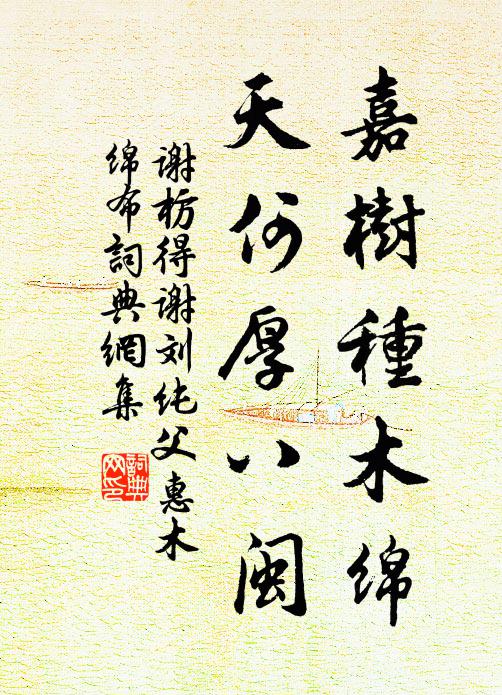 嘉樹種木綿
天何厚八閩
谢枋得谢刘纯父惠木
绵布詞典網集
詞典网印